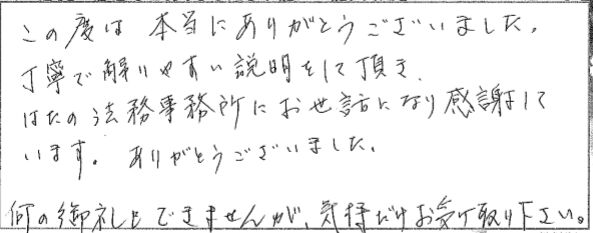 この度は 本当にありがとうございました。
丁寧で解りやすい説明をして頂き、
はたの法務事務所にお世話になり感謝して
います。 ありがとうございました。
何の御礼もできませんが、気持だけお受け取り下さい。